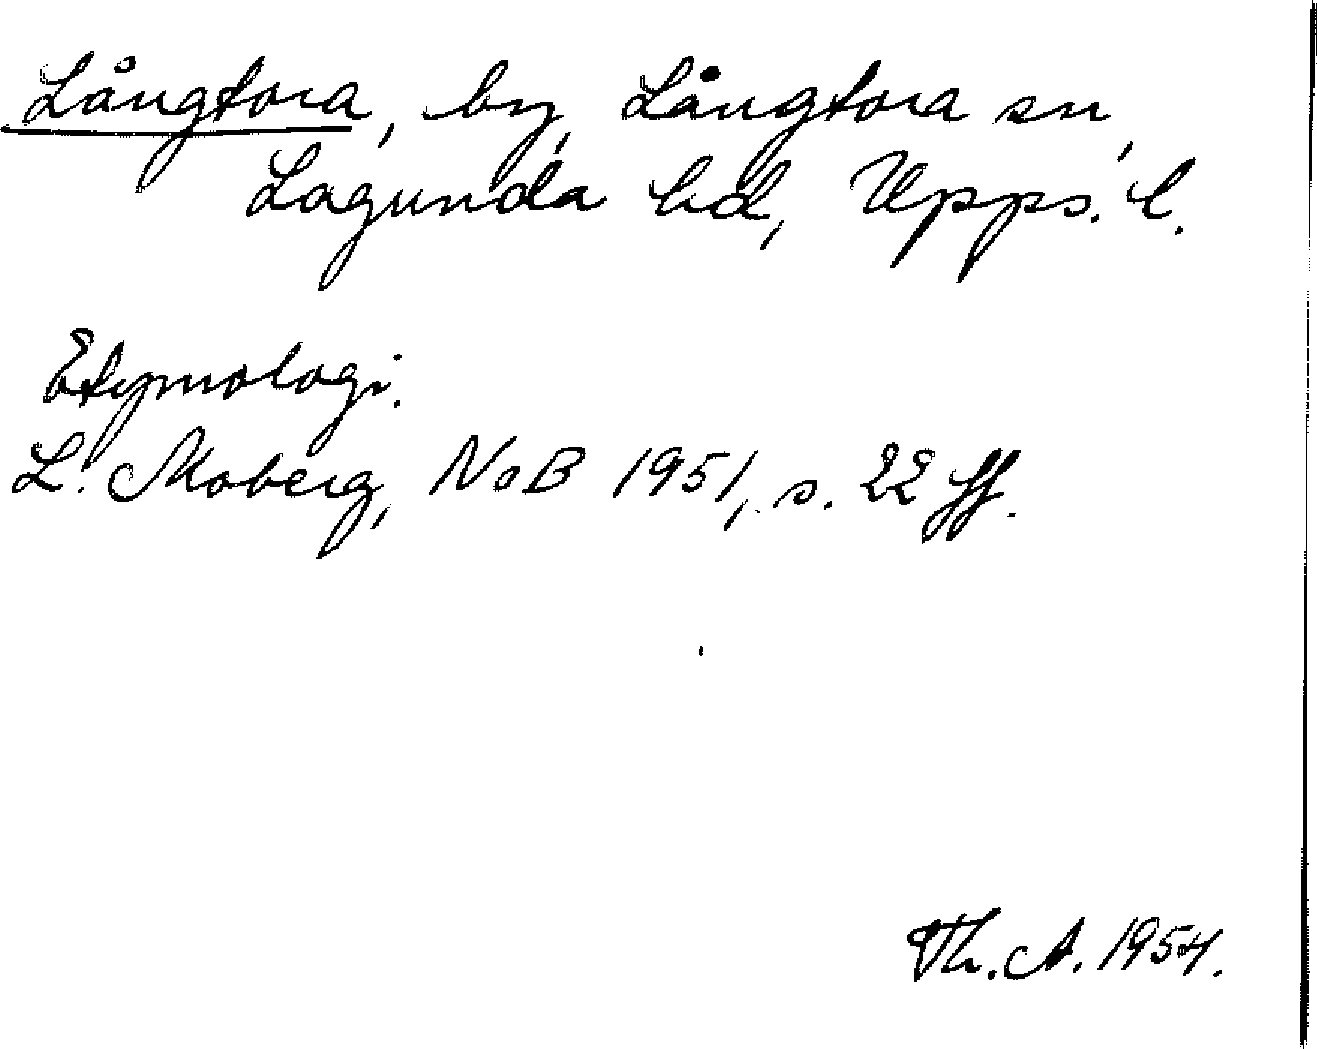 Långtora, by, Långtora sn,
Lagunda hd, Upps. l.
Etymologi.
L. Moberg, NoB 1951, s. 22 ff.
Th. A. 1954.